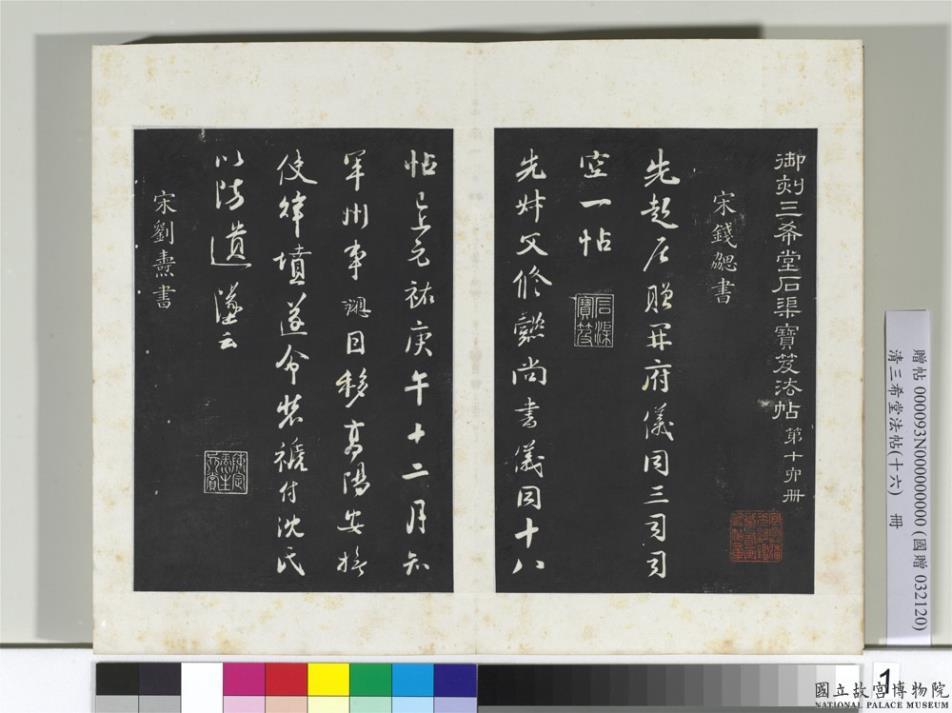 御刻三希堂石渠寶笈法帖 第十六冊
宋錢勰書
先起居贈開府儀同三司司
空一帖
石渠寶笈
先叔父修懿尚書儀同十八
帖已上元祐庚午十二月知
軍州事勰目移高陽安撫
使拜墳遂令裝褫付沈氏
以防遺墜云
宋劉燾書
贈帖 000093N000000000 (國贈 032120)
清三希堂法帖(十六) 冊
1
國立故宮博物院
NATIONAL PALACE MUSEUM